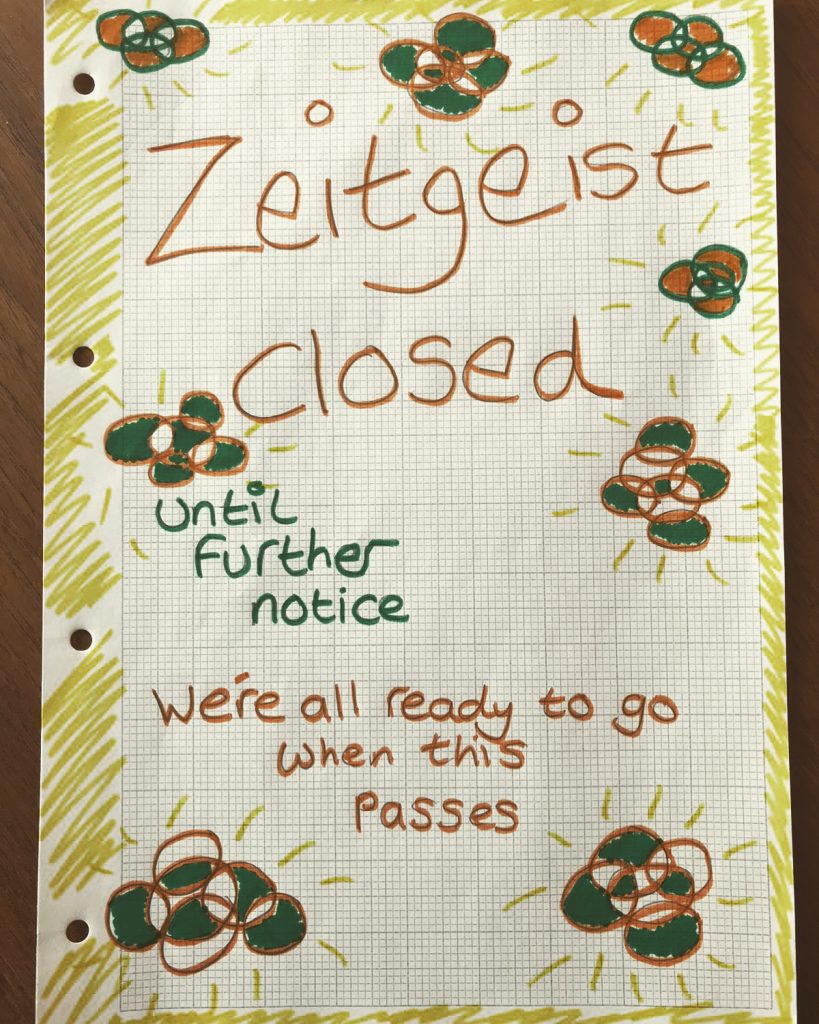 Zeitgeist
closed
until
further
notice
We're all ready to go
when this
passes